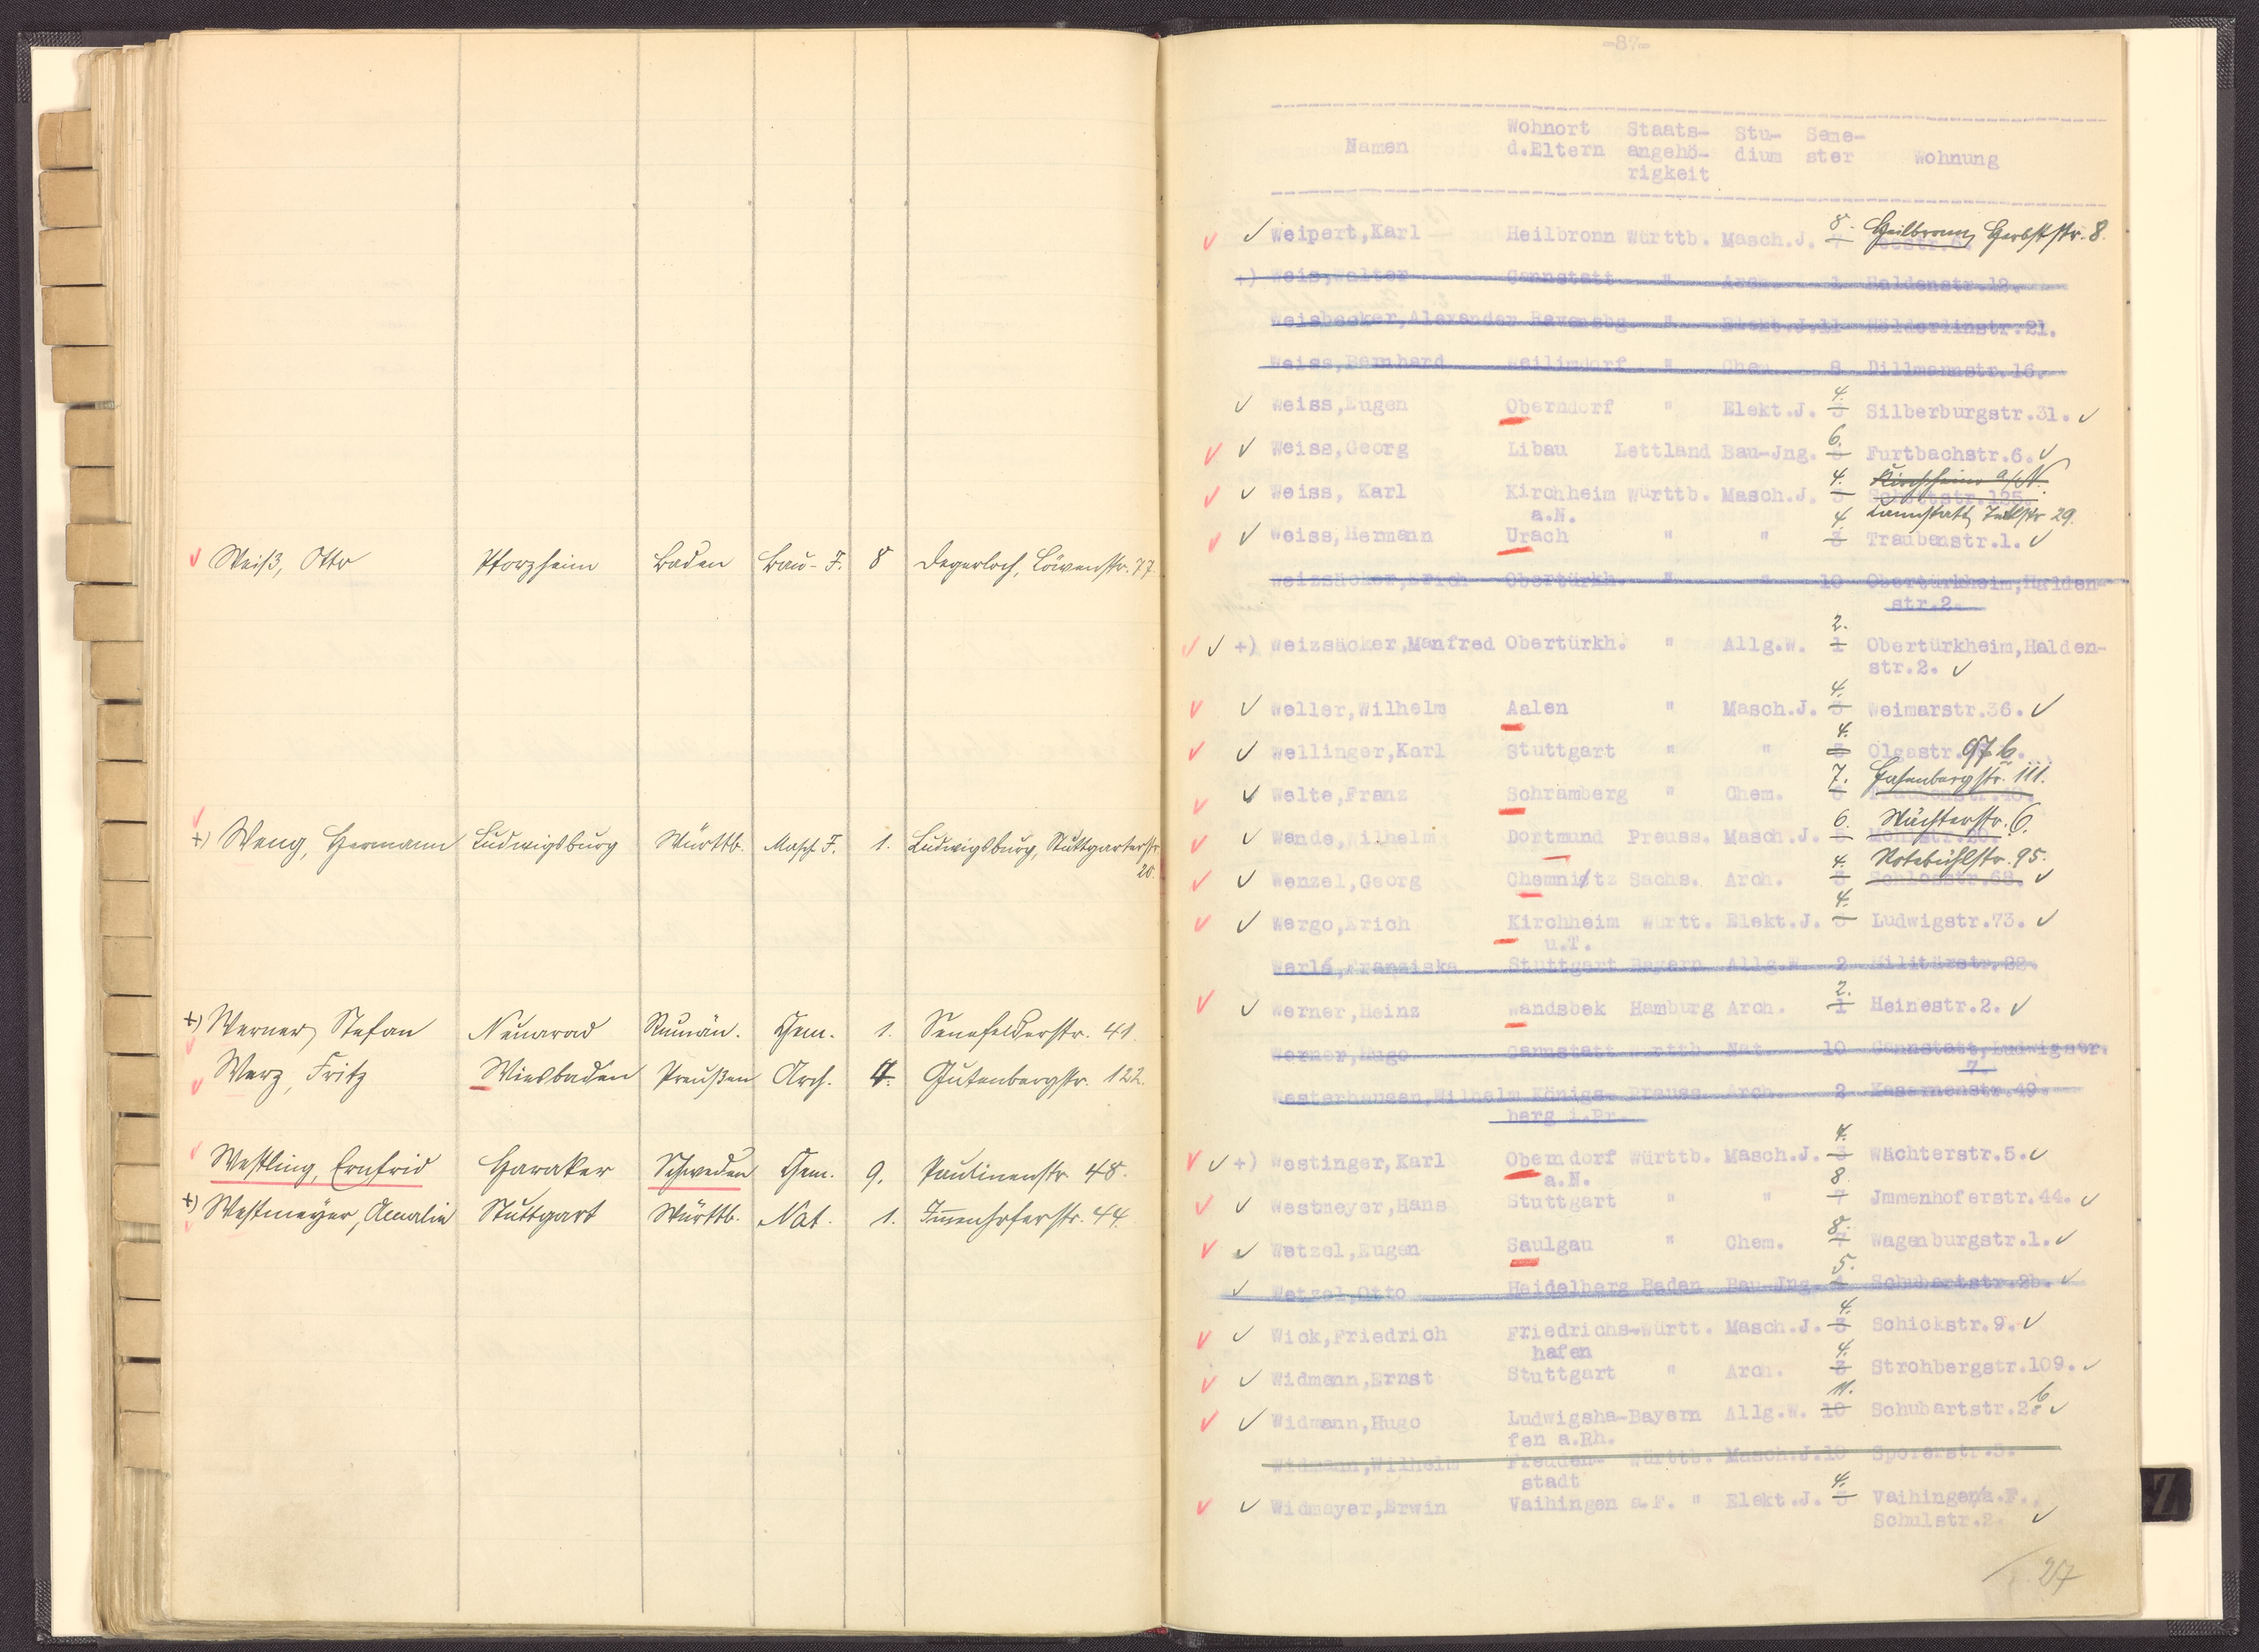 Weiß, Otto Pforzheim Baden Bau-J. 8 Degerloch, Löwenstr. 77.
+) Weng, Hermann Ludwigsburg Württb. Masch J. 1. Ludwigsburg, Stuttgarterstr
20.
+) Werner, Stefan Neuarad Rumän. Chem. 1. Senefelderstr. 41.
Werz, Fritz Wiesbaden Preußen Arch. 4. Gutenbergstr. 122.
Westling, Ernfrid Haraker Schweden Chem. 9. Paulinenstr. 48.
+) Westmeyer, Amalie Stuttgart Württb. Nat. 1. Immenhoferstr. 44.
-87-
Namen Wohnort d.Eltern Staats-angehö-rigkeit Stu-dium Seme-ster Wohnung
Weipert,Karl Heilbronn Württb. Masch.J. 8. Heilbronn, Herbststr. 8.
+) Weis,Walter Cannstatt " Arch. 1 Haldenstr.12.
Weisbecker,Alexander Ravensbg " Elekt.J.11 Hölderlinstr.21.
Weiss,Bernhard Weilimdorf " Chem. 8 Dillmannstr.16.
4.
Weiss,Eugen Oberndorf " Elekt.J. 3 Silberburgstr.31.
6.
Weiss,Georg Libau Lettland Bau-Jng. Furtbachstr.6.
4. Kirchheim a/N.
Weiss, Karl Kirchheim Württb. Masch.J. 3 125.
a.N.
4 Cannstatt, 29.
Weiss,Hermann Urach " " 3 Traubenstr.1.
Weizsäcker,Erich Obertürkh. " " 10 Obertürkheim,Halden-
str.2.
2.
+) Weizsäcker,Manfred Obertürkh. " Allg.W. 1 Obertürkheim,Halden-
str.2.
4.
Weller,Wilhelm Aalen " Masch.J. 3 Weimarstr.36.
4.
Wellinger,Karl Stuttgart " " 3 Olgastr. 97 b.
7. Hasenbergstr. 111.
Welte,Franz Schramberg " Chem. 6 Traubenstr.40.
6. Wächterstr. 6.
Wende,Wilhelm Dortmund Preuss. Masch.J. 5 Mohlstr.20.
4. Rotebühlstr. 95.
Wenzel,Georg Chemnitz Sachs. Arch. 3 Schlosstr.68.
4.
Wergo,Erich Kirchheim Württ. Elekt.J. 3 Ludwigstr.73.
u.T.
Werlé,Franziska Stuttgart Bayern Allg.W. 2 Militärstr.
2.
Werner,Heinz Wandsbek Hamburg Arch. 1 Heinestr.2.
Werner,Hugo Cannstatt Württb. Nat. 10 Cannstatt,Ludwigstr.
7.
Westerhausen,Wilhelm Königs- Preuss. Arch. 2 Kasernenstr.49.
berg i.Pr.
4.
+) Westinger,Karl Oberndorf Württb. Masch.J. 3 Wächterstr.5.
a.N.
8
Westmeyer,Hans Stuttgart " " 7 Jmmenhoferstr.44.
8.
Wetzel,Eugen Saulgau " Chem. 7 Wagenburgstr.1.
5.
Wetzel,Otto Heidelberg Baden Bau-Jng. 4 Schubartstr.2b.
4.
Wick,Friedrich Friedrichs-Württ. Masch.J. 3 Schickstr.9.
hafen
4.
Widmann,Ernst Stuttgart " Arch. 3 Strohbergstr.109.
11.
Widmann,Hugo Ludwigsha-Bayern Allg.W. 10 Schubartstr.2b
fen a.Rh.
Widmann,Wilhelm Freuden- Württb. Masch.J.10 Spoferstr.3.
stadt
4.
Widmayer,Erwin Vaihingen a.F. " Elekt.J. 3 Vaihingen/a.F.,
Schulstr.2.
27
Z